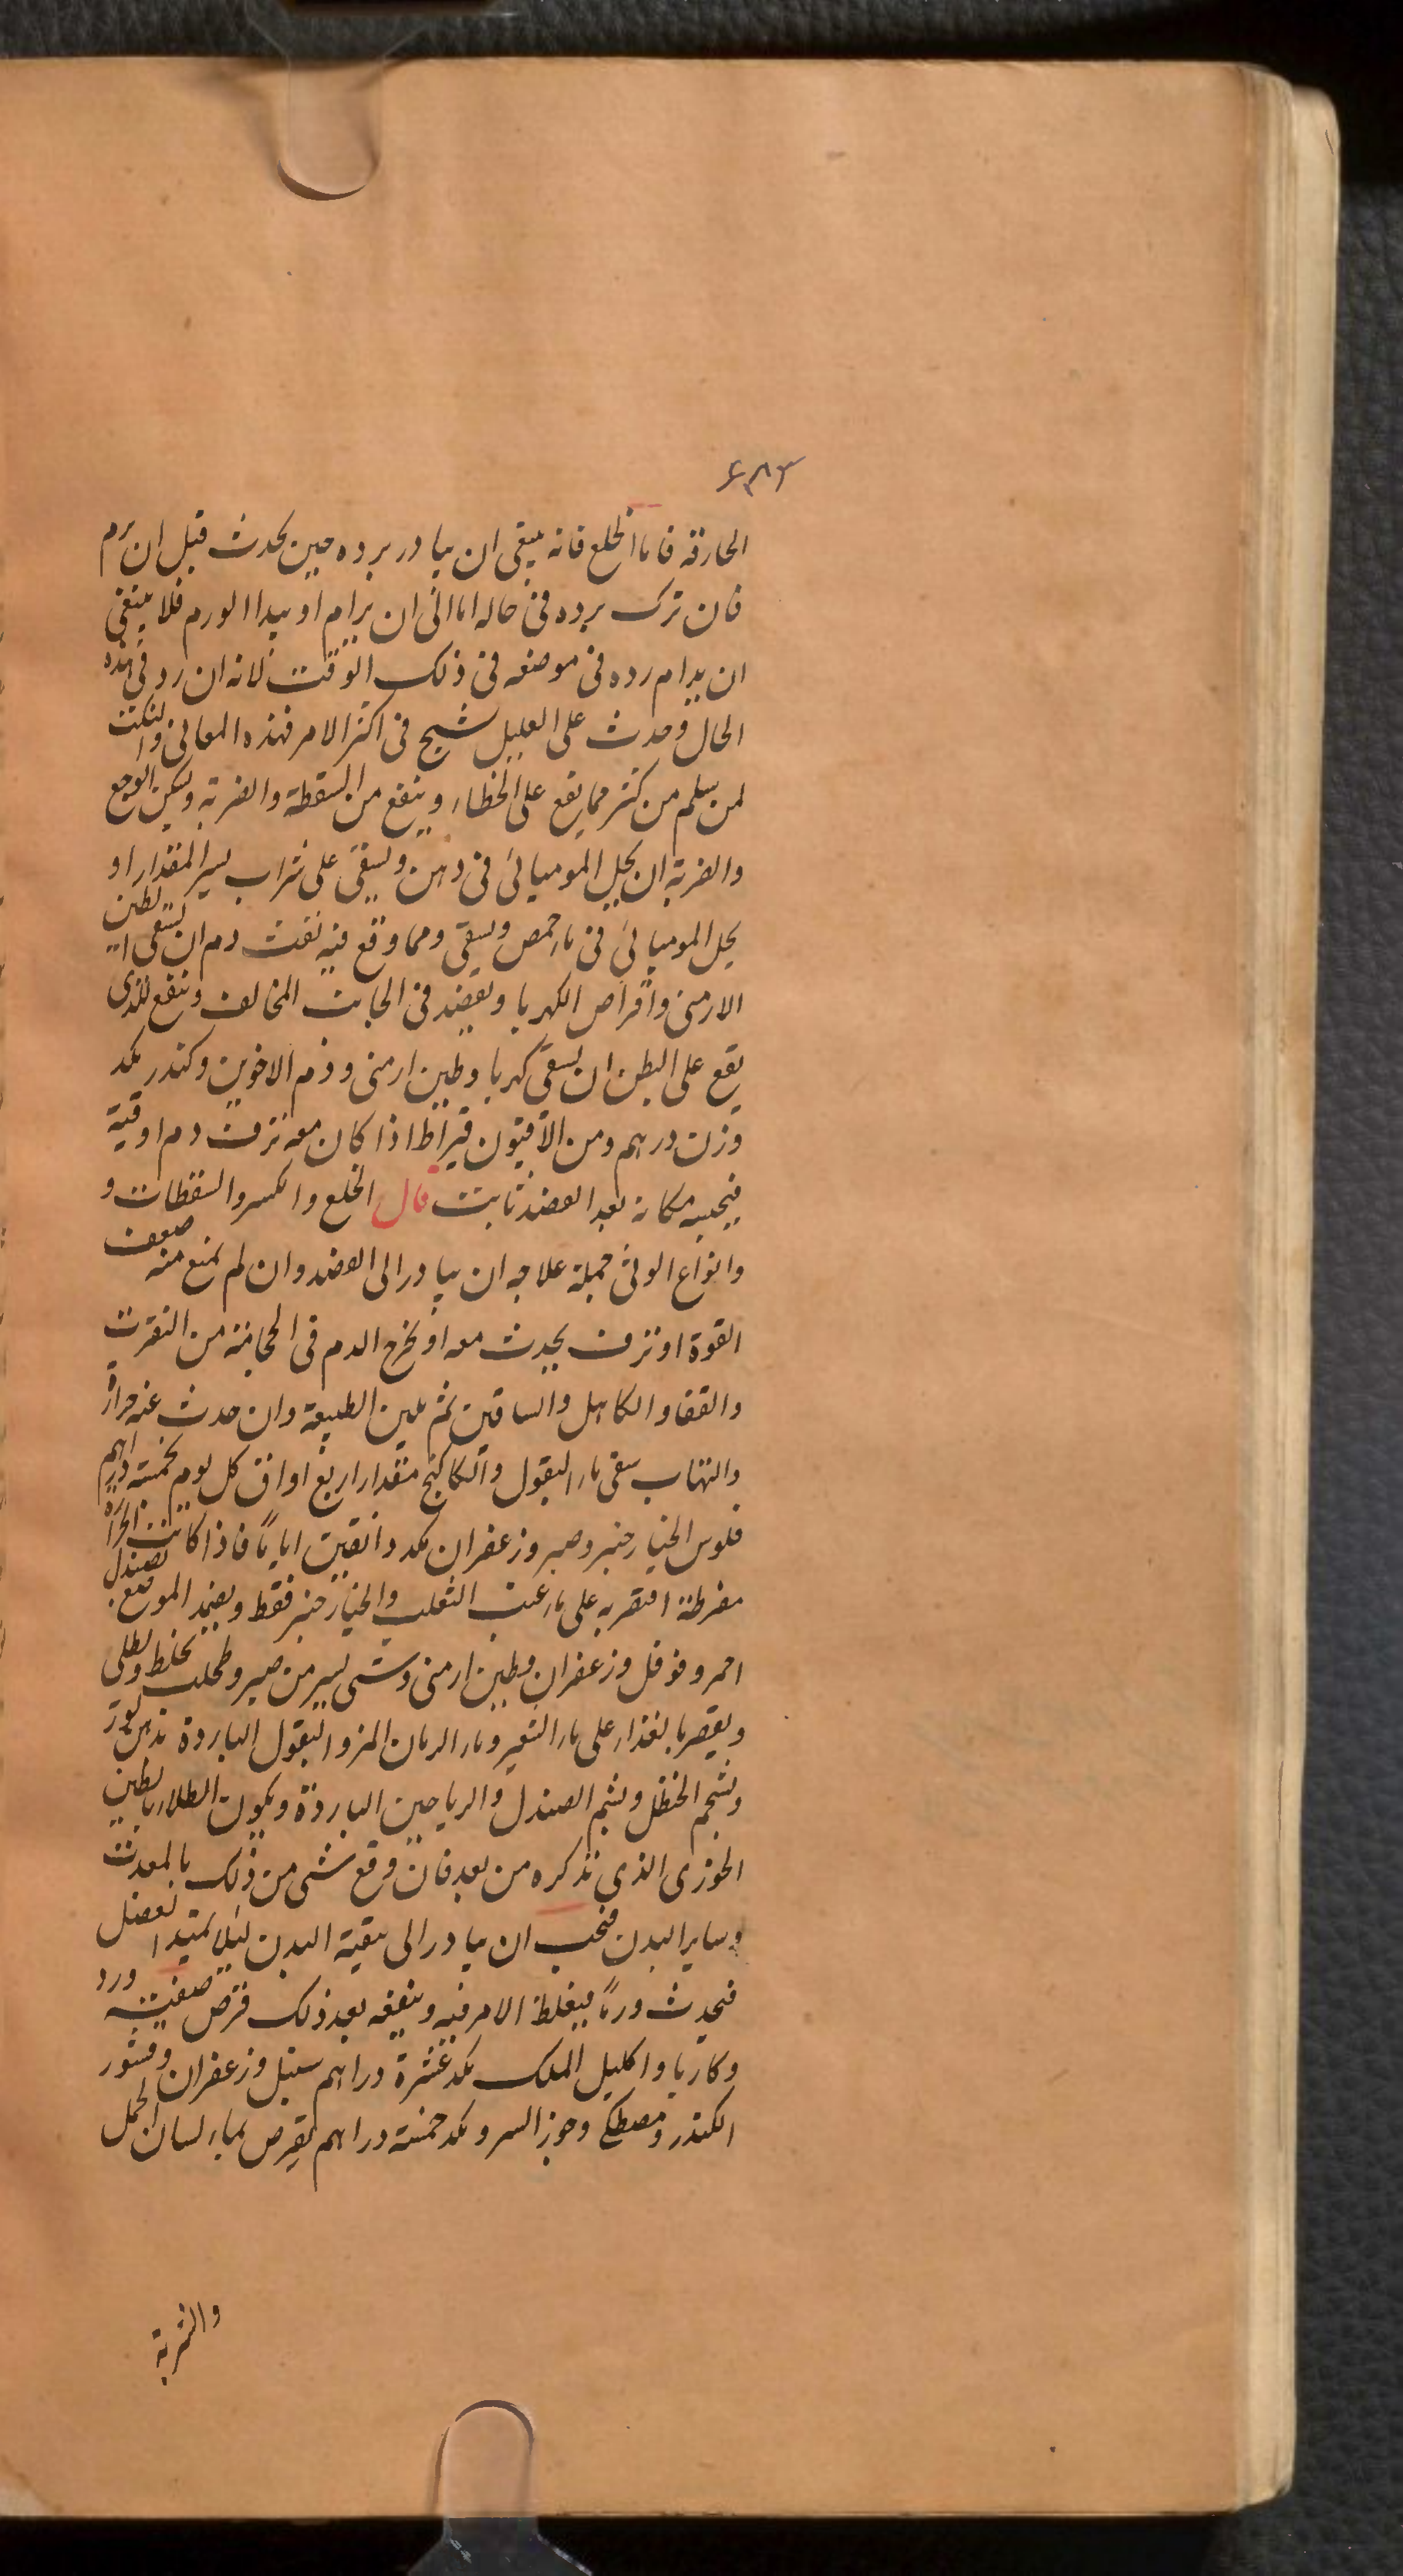 ۶۸۳
الحارقة فاما الخلع فانه ينبغى ان يبادر برده حين يحدث قبل ان يرم
فان ترك برده فى حاله اما الى ان يرام او يبدا الورم فلا ينبغى
ان يرام رده فى موضعه فى ذلك الوقت لانه ان رد فى هذه
الحال وحدث على العليل تشنج فى اكثر الامر فهذه المعانى والنكت
لمن يسلم من كثر مما يقع على الخطاء وينفع من السقطة والضربة ويسكن الوجع
والضربة ان يحل الموميائى فى دهن ويسقى على شراب يسير المقدار او
يحل الموميائى فى ماء حمص ويسقى ومما وقع فيه نفث دم ان يسقى الطين
الارمنى واقراص الكهربا ويفصد فى الجانب المخالف وينفع للذى
يقع على البطن ان يسقى كهربا وطين ارمنى ودم الاخوين وكندر مكد
وزن درهم ومن الافيون قيراط اذا كان معه نزف دم او قيه
فيحبسه مكانه بعد الفصد ثابت قال الخلع والكسر والسقطات و
وانواع الوثى جملة علاجه ان يبادر الى الفصد وان لم يمنع منه ضعف
القوة او نزف يحدث معه او يخرج الدم فى الحجامة من النقرة
والقفا والكاهل والساقين ثم تلين الطبيعة وان حدث عنه حرارة
والتهاب سقى ماء البقول والكاكنج مقدار اربع اواق كل يوم بخمسة دراهم
فلوس الخيارجنبر وصبر وزعفران مكد دانقين اياما فاذا كانت الحرارة
مفرطة اقتصر به على ماء عنب الثعلب والخيارجنبر فقط ويضمد الموضع بصندل
احمر وفوفل وزعفران وطين ارمنى وشى يسير من صبر وطحلب يخلط ويطلى
ويقصر بالغذاء على ماء الشعير وماء الرمان المز والبقول الباردة بدهن لوز
وشحم الحنظل ويشم الصندل والرياحين الباردة ويكون الطلاء بالطين
الخوزى الذى نذكره من بعد فان وقع شى من ذلك بالمعدة
وساير البدن فيجب ان يبادر الى تنقية البدن ليلا يمتد الفضل
فيحدث ورما فيغلظ الامر فيه وينفعه بعد ذلك قرص صفته ورد
وكاربا واكليل الملك مكد عشرة دراهم سنبل وزعفران وقشور
الكندر ومصطكى وجوز السرو مكد خمسة دراهم يقرص بماء لسان الحمل
والشربة